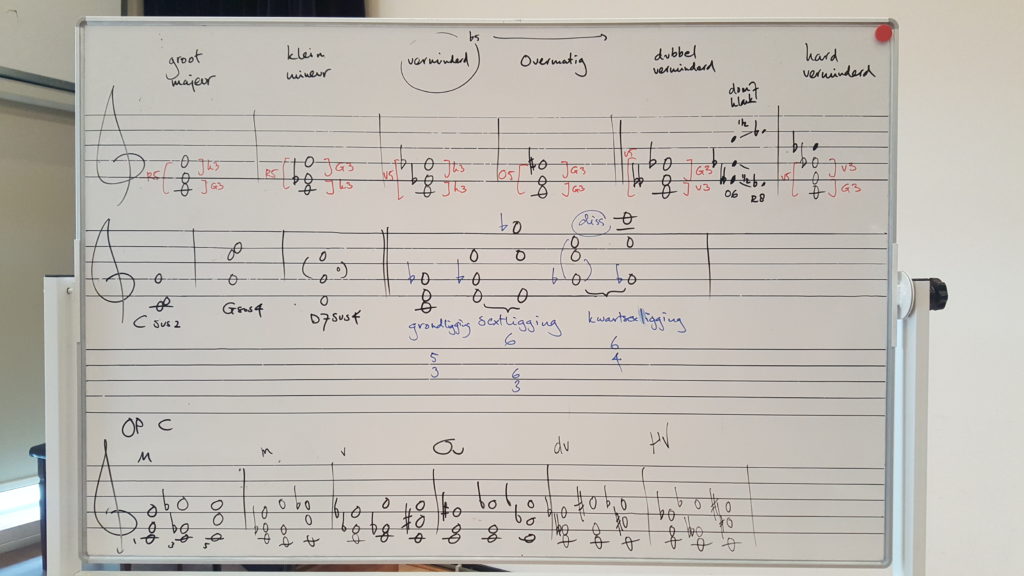 b5
groot majeur
klein mineur
verminderd
Overmatig
dubbel verminderd
hard verminderd
dom7 klank
R5 k3 G3
R5 G3 k3
V5 k3 k3
O5 G3 G3
V5 G3 V3
1/2
O6 R8
V5 V3 G3
diss
C sus2
Gsus4
D7sus4
grondligging
sextligging
kwartsextligging
5
3
6
6
3
6
4
OP C
M
m
v
O
dv
HV
1 3 5